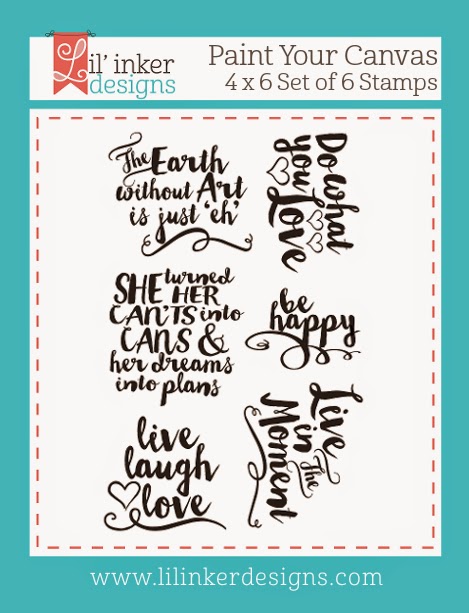 Lil' inker
designs
Paint Your Canvas
4 x 6 Set of 6 Stamps
The Earth
without Art
is just 'eh'
Do what
you
Love
SHE turned
HER
CAN'TS into
CANS &
her dreams
into plans
be
happy
live
laugh
love
Live
in The
Moment
www.lilinkerdesigns.com